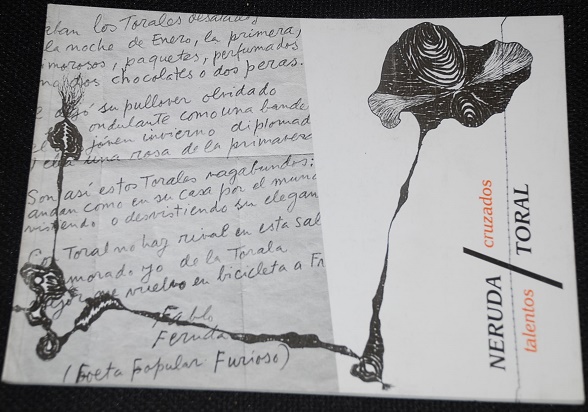 ban los Torales desatados
la noche de Enero, la primera,
morosos, paquetes, perfumados
dos chocolates o dos peras.
dejó su pullover olvidado
ondulante como una bande
joven invierno diplomad
una rosa de la primavera
Son así estos Torales vagabundos:
andan como en su casa por el mund
vistiendo o desvistiendo su elegan
Toral no hay rival en esta sal
morado yo de la Torala
vuelvo en bicicleta a Fr
Fablo
Feruda
(Foeta Fopular Furioso)
NERUDA / TORAL
talentos cruzados